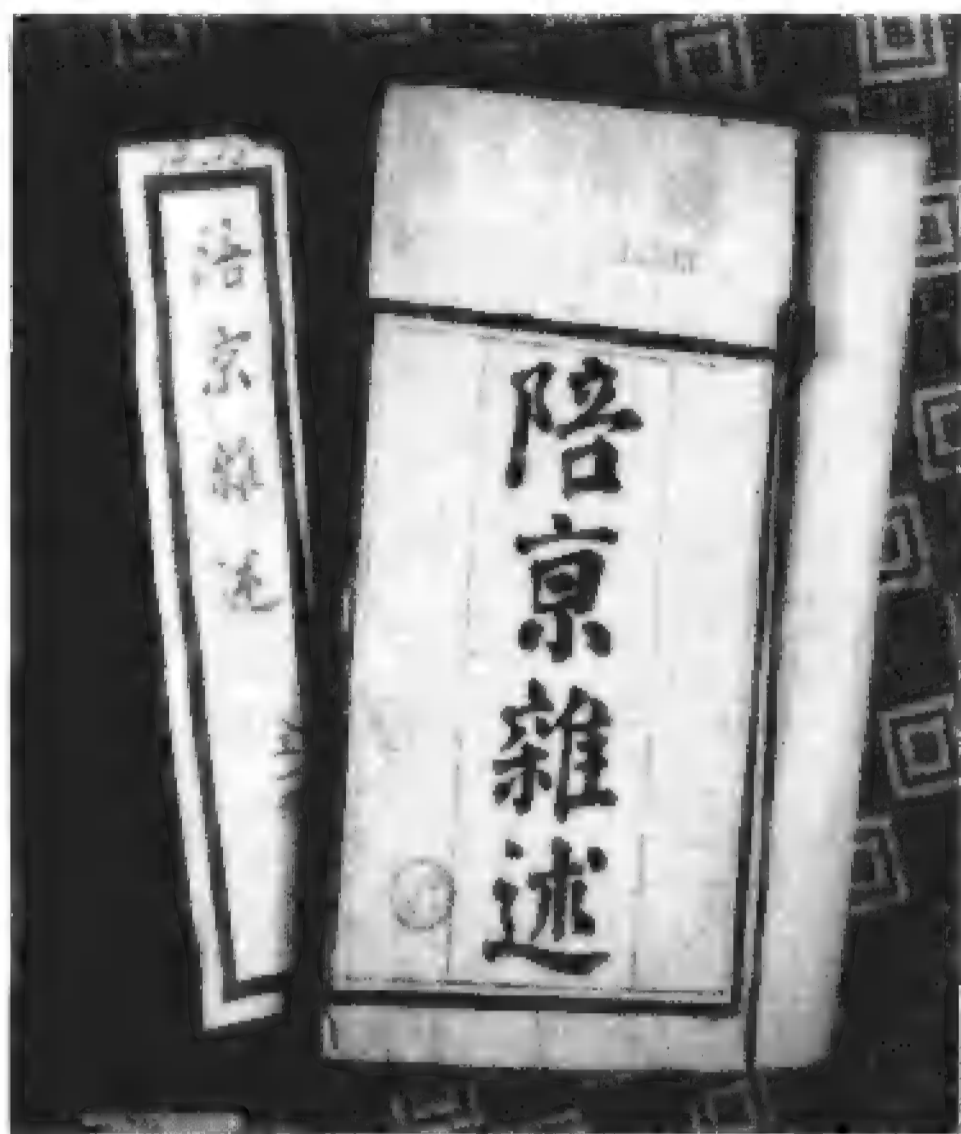 陪京雜述
陪京雜述